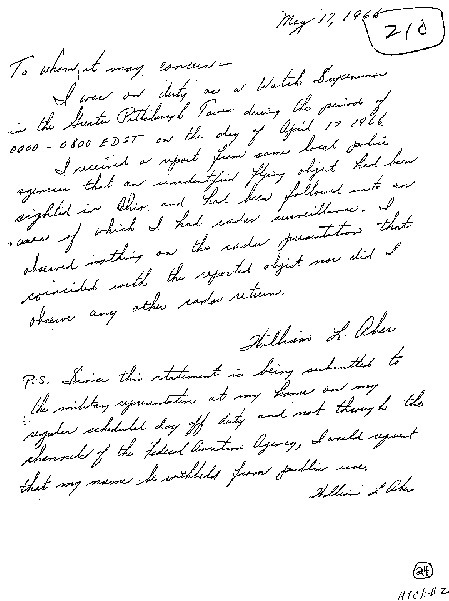 May 17, 1966
210
To whom it may concern—
I was on duty as a Watch Supervisor
in the Greater Pittsburgh Tower during the periods of
0000 - 0800 EDST on the day of April 17 1966
I received a report from some local police
agencies that an unidentified flying object had been
sighted in Ohio, and had been followed into an
area of which I had radar surveillance. I
observed nothing on the radar presentation that
coincided with the reported object nor did I
observe any other radar returns.
William L. Aber
P.S. Since this statement is being submitted to
the military representative at my home on my
regular scheduled day off duty and not through the
channels of the Federal Aviation Agency, I would request
that my name be withheld from public use.
William L Aber
24